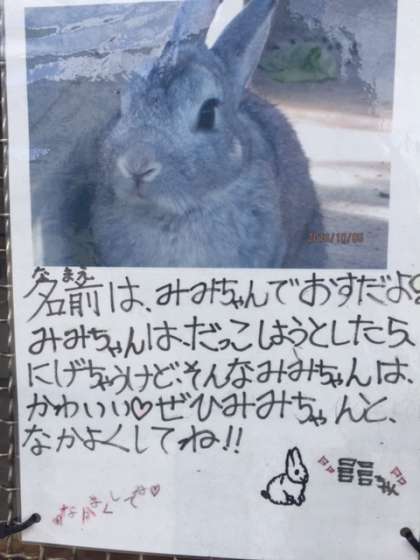 なまえ
名前は、みみちゃんでおすだよ
みみちゃんは、だっこしようとしたら、
にげちゃうけど、そんなみみちゃんは、
かわいい♡ぜひみみちゃんと、
なかよくしてね!!
なかよくしてね♡